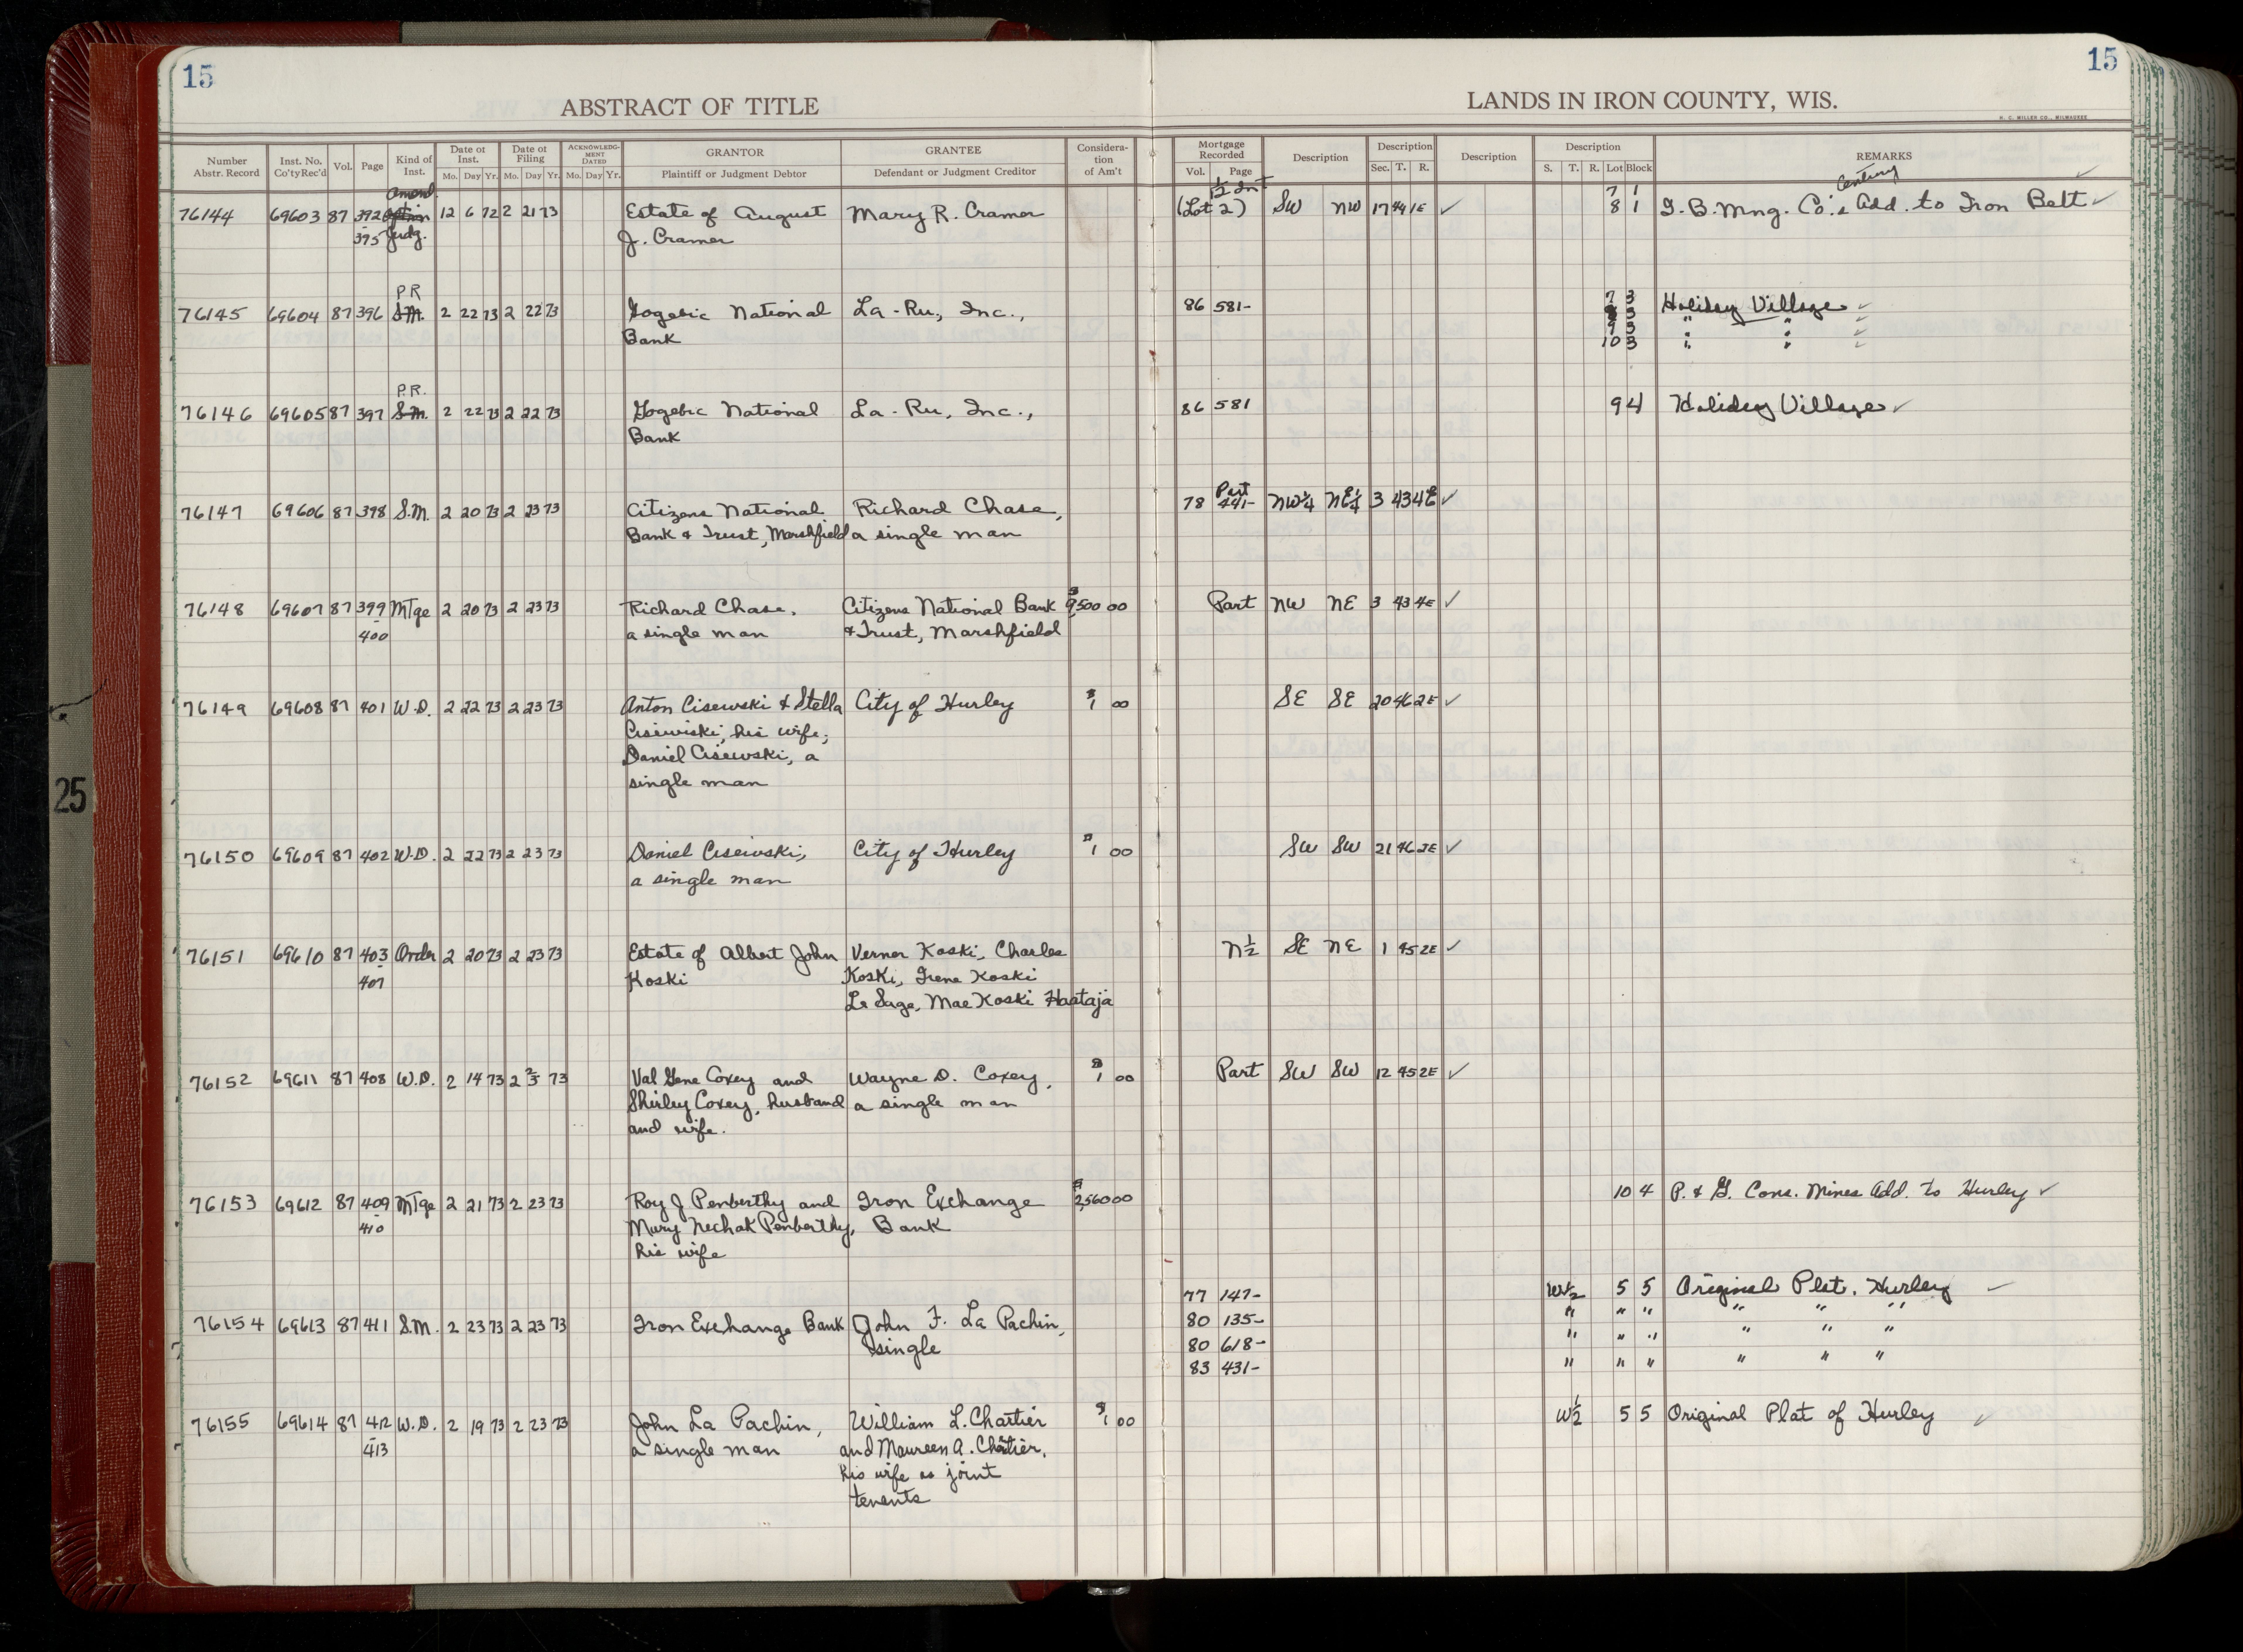 15
15
ABSTRACT OF TITLE
LANDS IN IRON COUNTY, WIS.
H. C. MILLER CO., MILWAUKEE
Number Abstr. Record Inst. No. Co'ty Rec'd Vol. Page Kind of Inst. Date of Inst. Mo. Day Yr. Date of Filing Mo. Day Yr. ACKNOWLEDGMENT DATED Mo. Day Yr. GRANTOR Plaintiff or Judgment Debtor GRANTEE Defendant or Judgment Creditor Consideration of Am't Mortgage Recorded Vol. Page Description Description Sec. T. R. Description Description S. T. R. Lot Block REMARKS
Amend. 1/2 Int 7 1 Century
76144 69603 87 392 12 6 72 2 21 73 Estate of August Mary R. Cramer (Lot 2) SW NW 17 44 1E ✓ 8 1 G.B. Mng. Co.'s Add. to Iron Belt ✓
395 Judg. J. Cramer
P.R. 7 3 Holiday Village ✓
76145 69604 87 396 S.M. 2 22 73 2 22 73 Gogebic National La-Ru, Inc., 86 581- 8 3 " " ✓
Bank 9 3 " " ✓
10 3 " " ✓
P.R.
76146 69605 87 397 S.M. 2 22 73 2 22 73 Gogebic National La-Ru, Inc., 86 581 9 4 Holiday Village ✓
Bank
Part
76147 69606 87 398 S.M. 2 20 73 2 23 73 Citizens National Richard Chase, 78 441- NW¼ NE¼ 3 43 4E ✓
Bank & Trust, Marshfield a single man
76148 69607 87 399 Mtge 2 20 73 2 23 73 Richard Chase, Citizens National Bank $9,500 00 Part NW NE 3 43 4E ✓
400 a single man & Trust, Marshfield
76149 69608 87 401 W.D. 2 22 73 2 23 73 Anton Cisewski & Stella City of Hurley $1 00 SE SE 20 46 2E ✓
Cisewiski, his wife;
Daniel Cisewski, a
single man
76150 69609 87 402 W.D. 2 22 73 2 23 73 Daniel Cisewski, City of Hurley $1 00 SW SW 21 46 2E ✓
a single man
76151 69610 87 403 Order 2 20 73 2 23 73 Estate of Albert John Verner Koski, Charles N½ SE NE 1 45 2E ✓
407 Koski Koski, Irene Koski
Le Sage, Mae Koski Haataja
76152 69611 87 408 W.D. 2 14 73 2 23 73 Val Gene Coxey and Wayne D. Coxey, $1 00 Part SW SW 12 45 2E ✓
Shirley Coxey, husband a single man
and wife.
76153 69612 87 409 Mtge 2 21 73 2 23 73 Roy J Penberthy and Iron Exchange $2,560 00 10 4 P. & G. Cons. Mines Add. to Hurley ✓
410 Mary Nechak Penberthy, Bank
his wife
77 147- W½ 5 5 Original Plat, Hurley ✓
76154 69613 87 411 S.M. 2 23 73 2 23 73 Iron Exchange Bank John F. La Pachin, 80 135- " " " " " "
single 80 618- " " " " " "
83 431- " " " " " "
76155 69614 87 412 W.D. 2 19 73 2 23 73 John La Pachin, William L. Chartier $1 00 W½ 5 5 Original Plat of Hurley ✓
413 a single man and Maureen A. Chartier,
his wife as joint
tenents
25